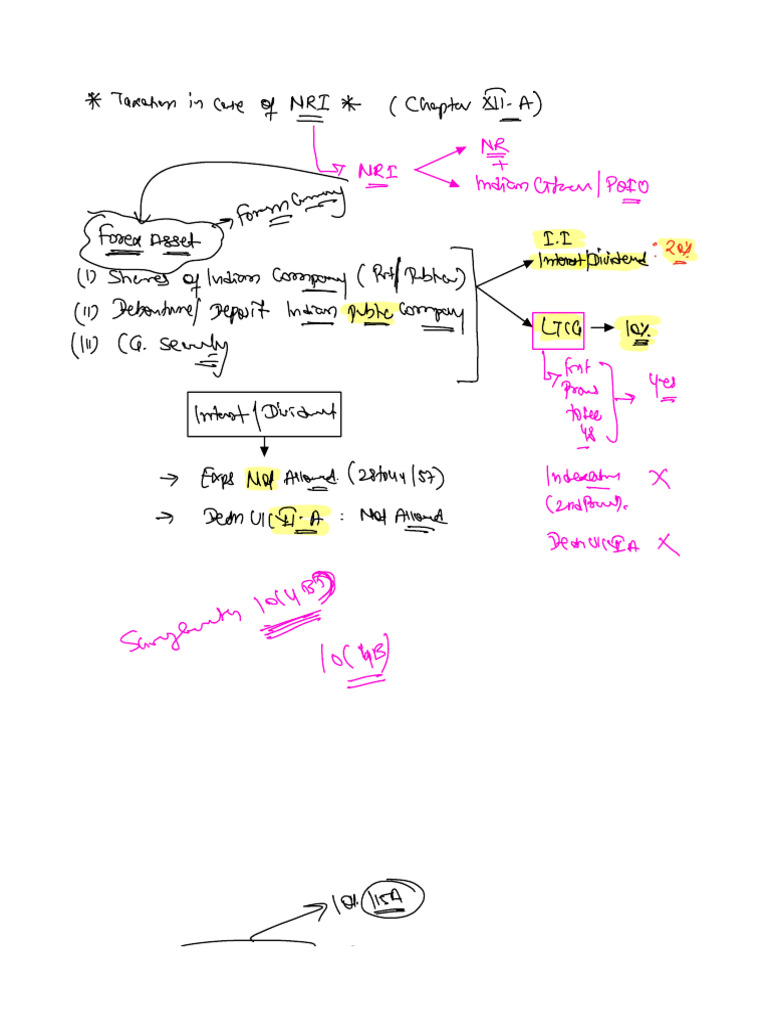 * Taxation in case of NRI * (Chapter XII-A)
NRI
NR
+
Indian Citizen / POIO
Forex Asset
Foreign Currency
(I) Shares of Indian Company (Pvt / Public)
(II) Debenture / Deposit Indian Public Company
(III) CG. Security
I.I
Interest/Dividend : 20%
LTCG → 10%
First
Proviso
to sec
48
Yes
Interest / Dividend
→ Exps Not Allowed (28 to 44 / 57)
→ Dedn U/C VI-A : Not Allowed
Indexation X
(2nd Proviso).
Dedn U/C VI A X
10(4B)
10% 115A